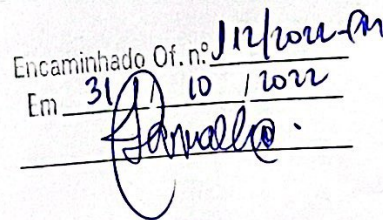 Encaminhado Of. n.º 112/2022-PM
Em 31 / 10 / 2022